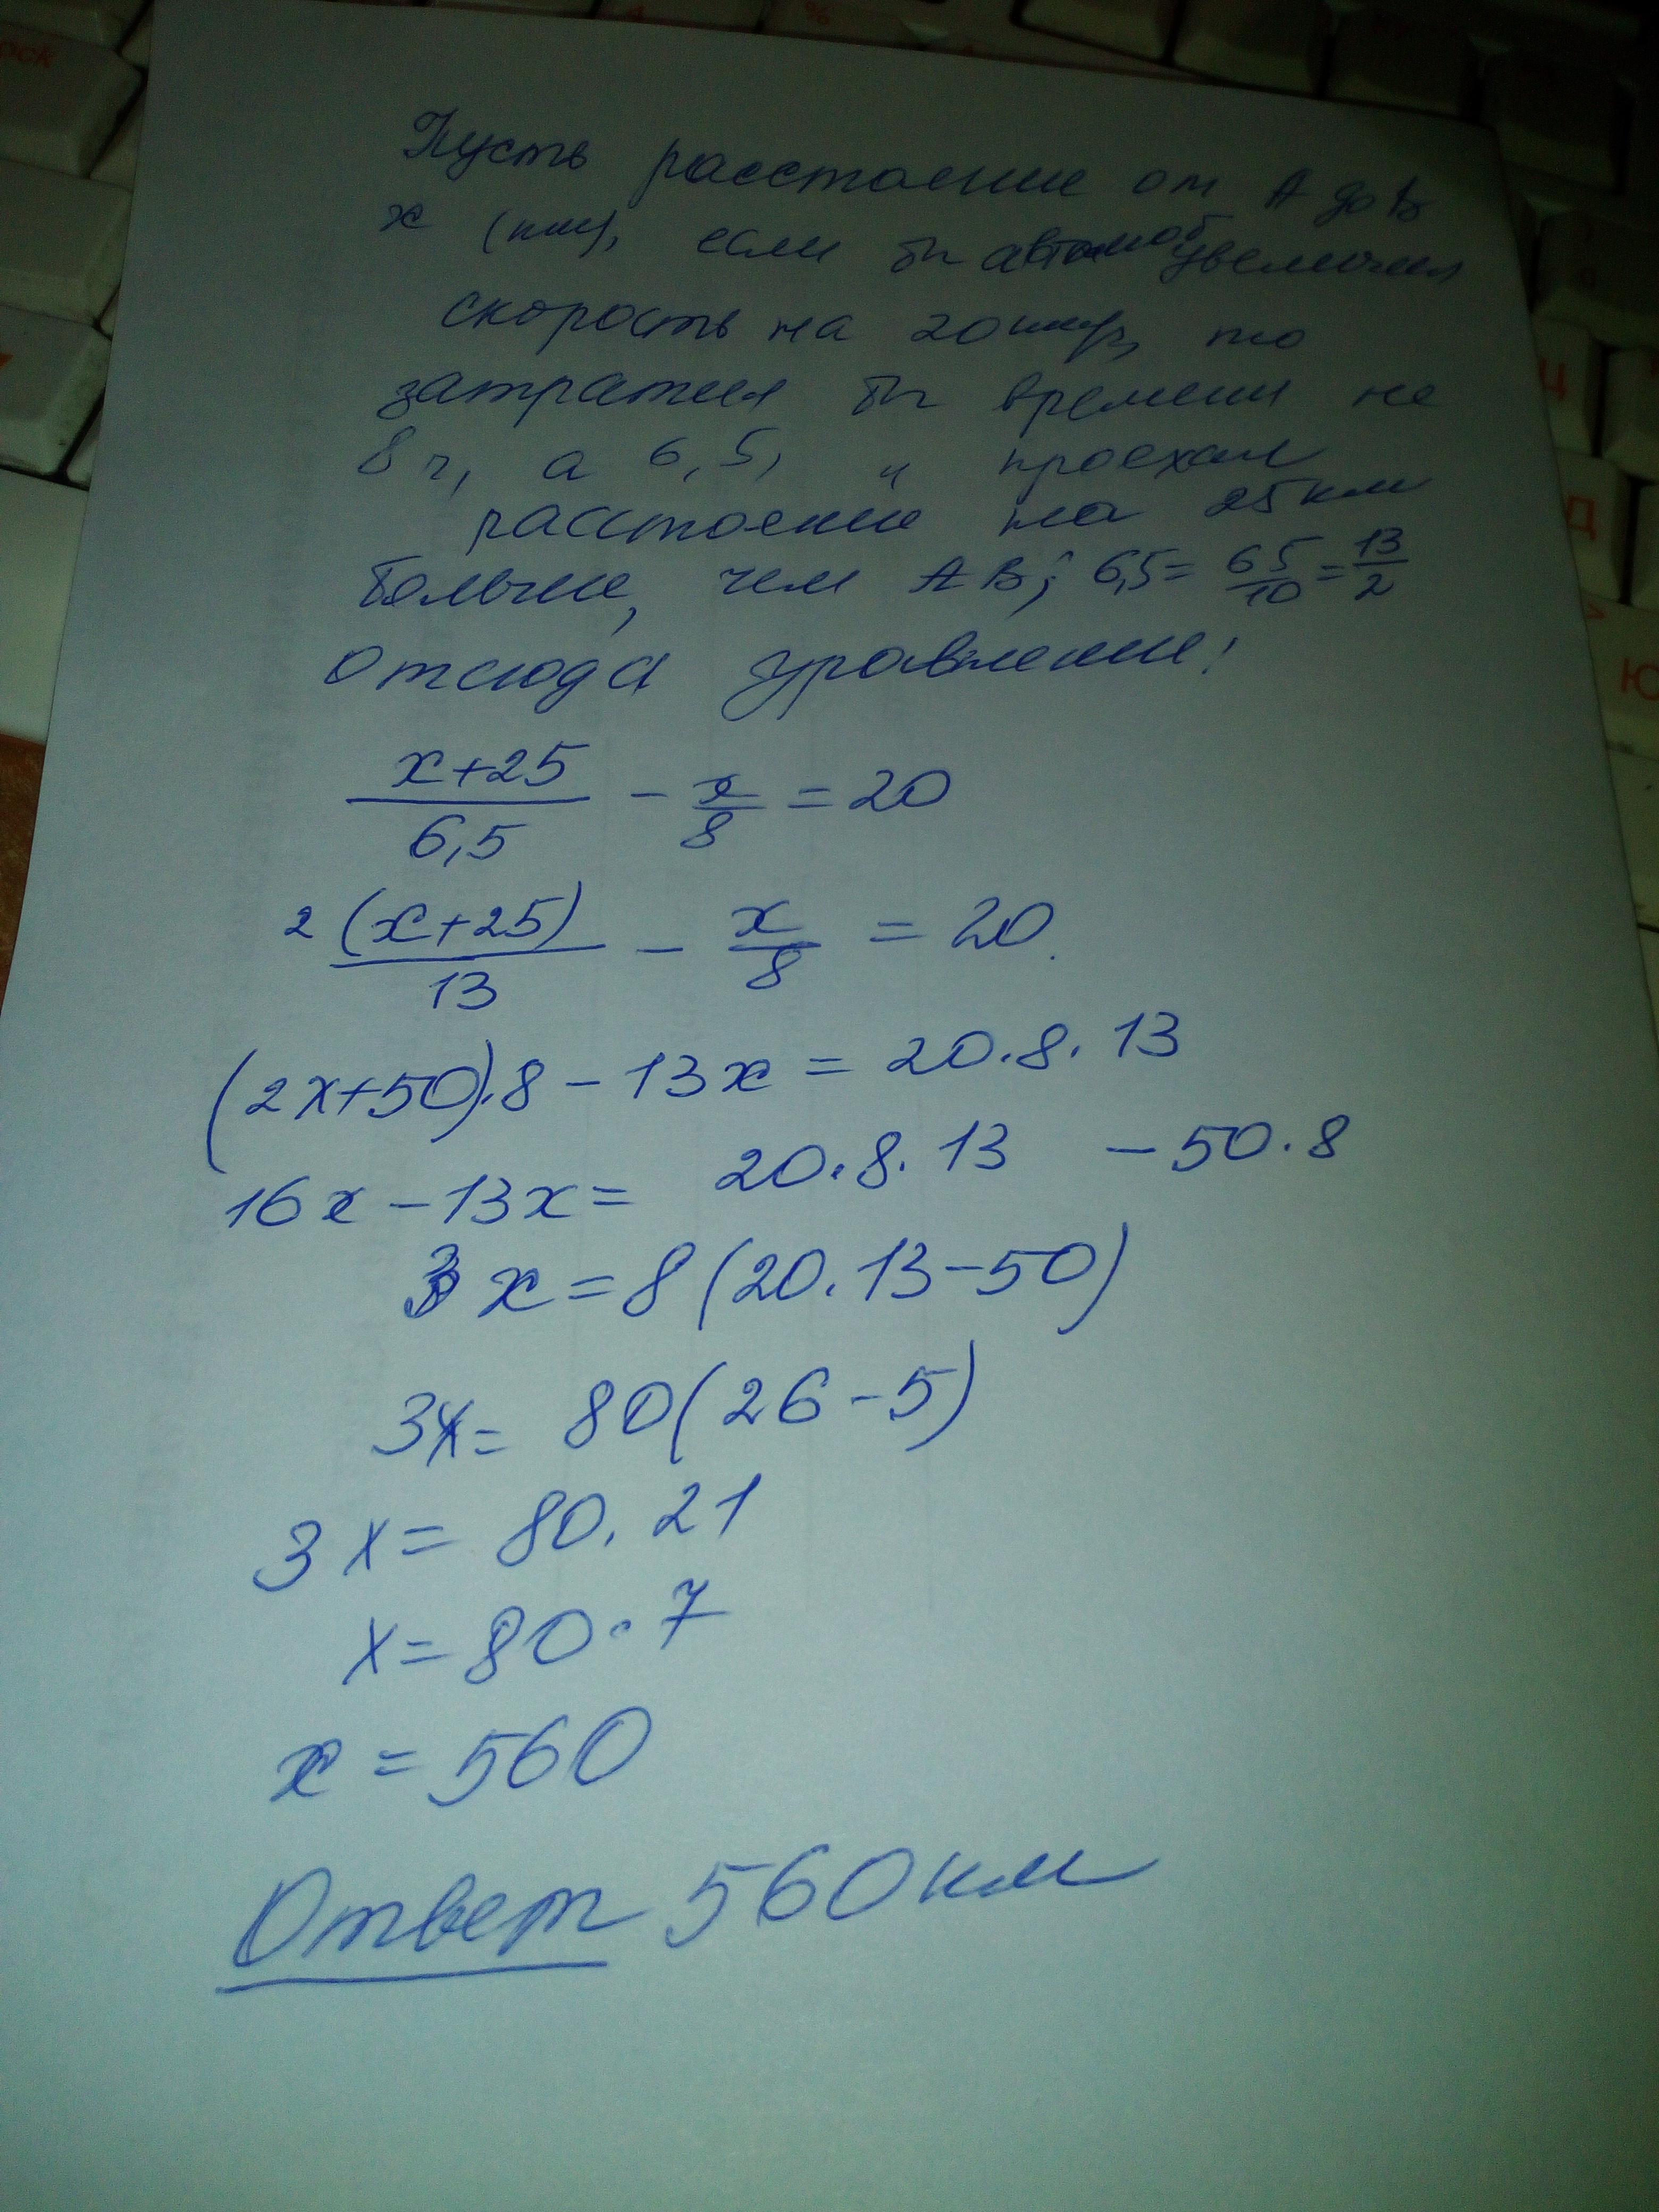 Пусть расстояние от А до В
х (км), если бы автомоб увеличил
скорость на 20 км/ч, то
затратил бы времени не
8 ч, а 6,5, и проехал
расстояние на 25 км
больше, чем АВ; 6,5 = 65/10 = 13/2
Отсюда уравнение:
(x+25)/6,5 - x/8 = 20
2(x+25)/13 - x/8 = 20.
(2x+50)·8 - 13x = 20·8·13
16x - 13x = 20·8·13 - 50·8
3x = 8(20·13-50)
3x = 80(26-5)
3x = 80·21
x = 80·7
x = 560
Ответ 560 км